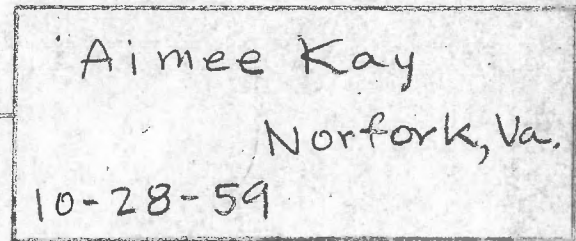 Aimee Kay
Norfork, Va.
10-28-59